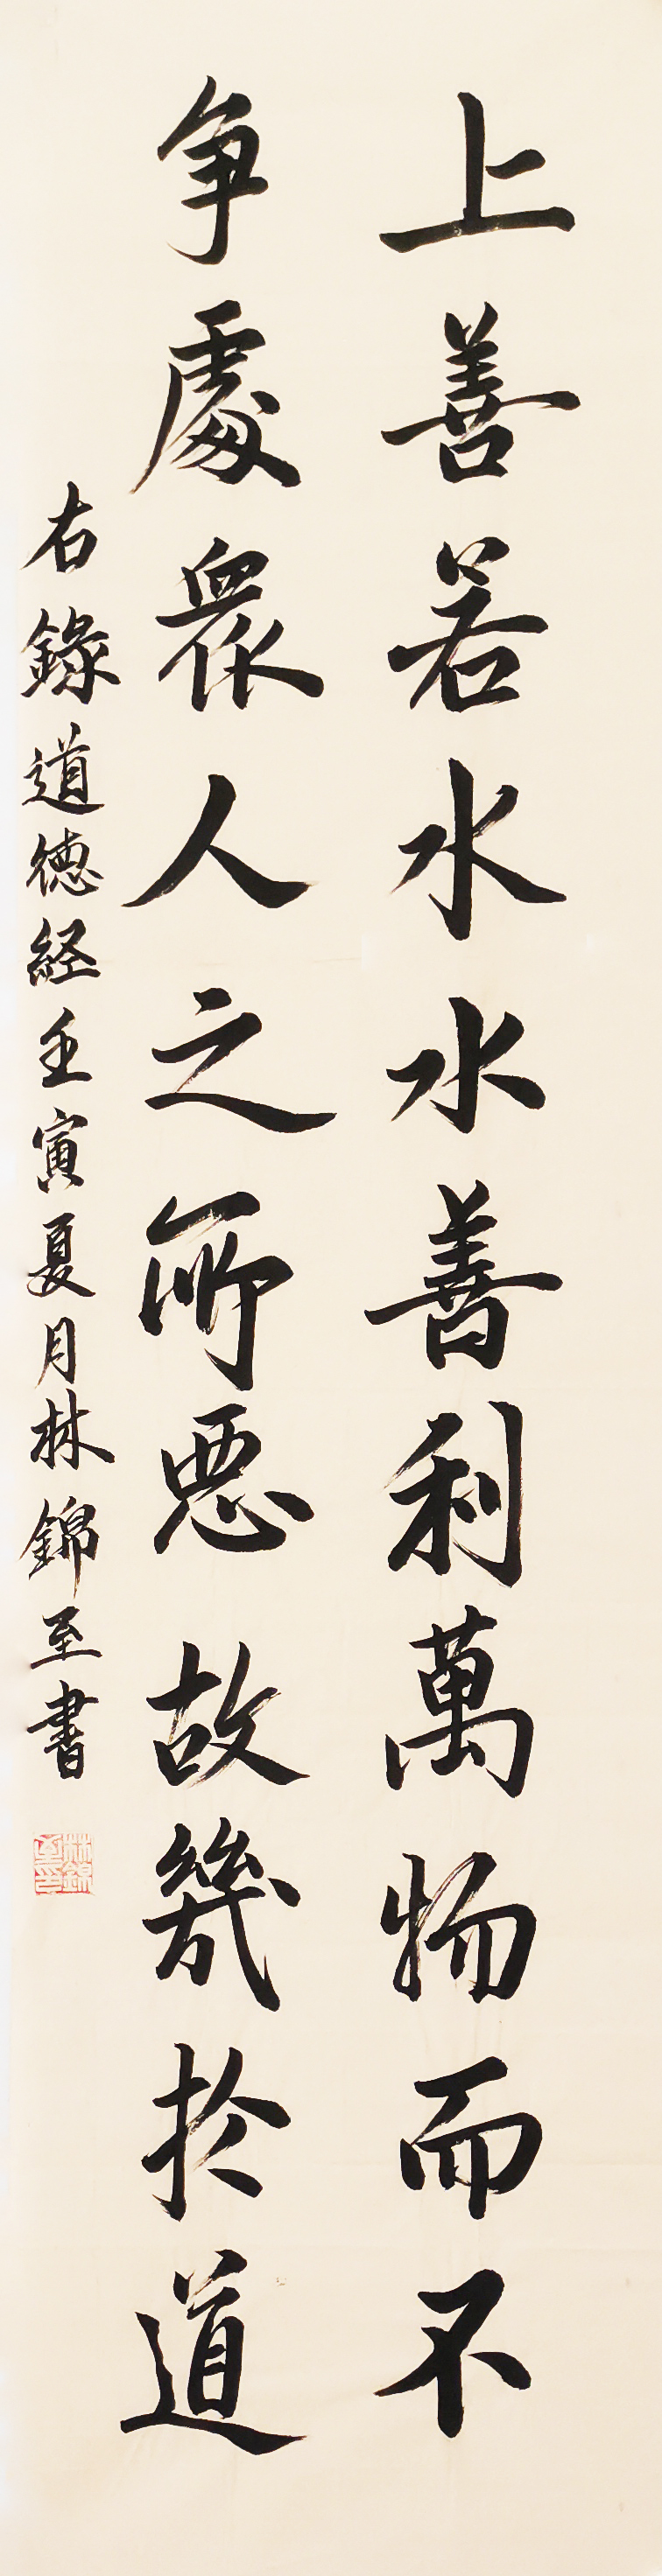 上善若水水善利萬物而不
争處衆人之所惡故幾於道
右錄道德経壬寅夏月林錦至書
林錦至印